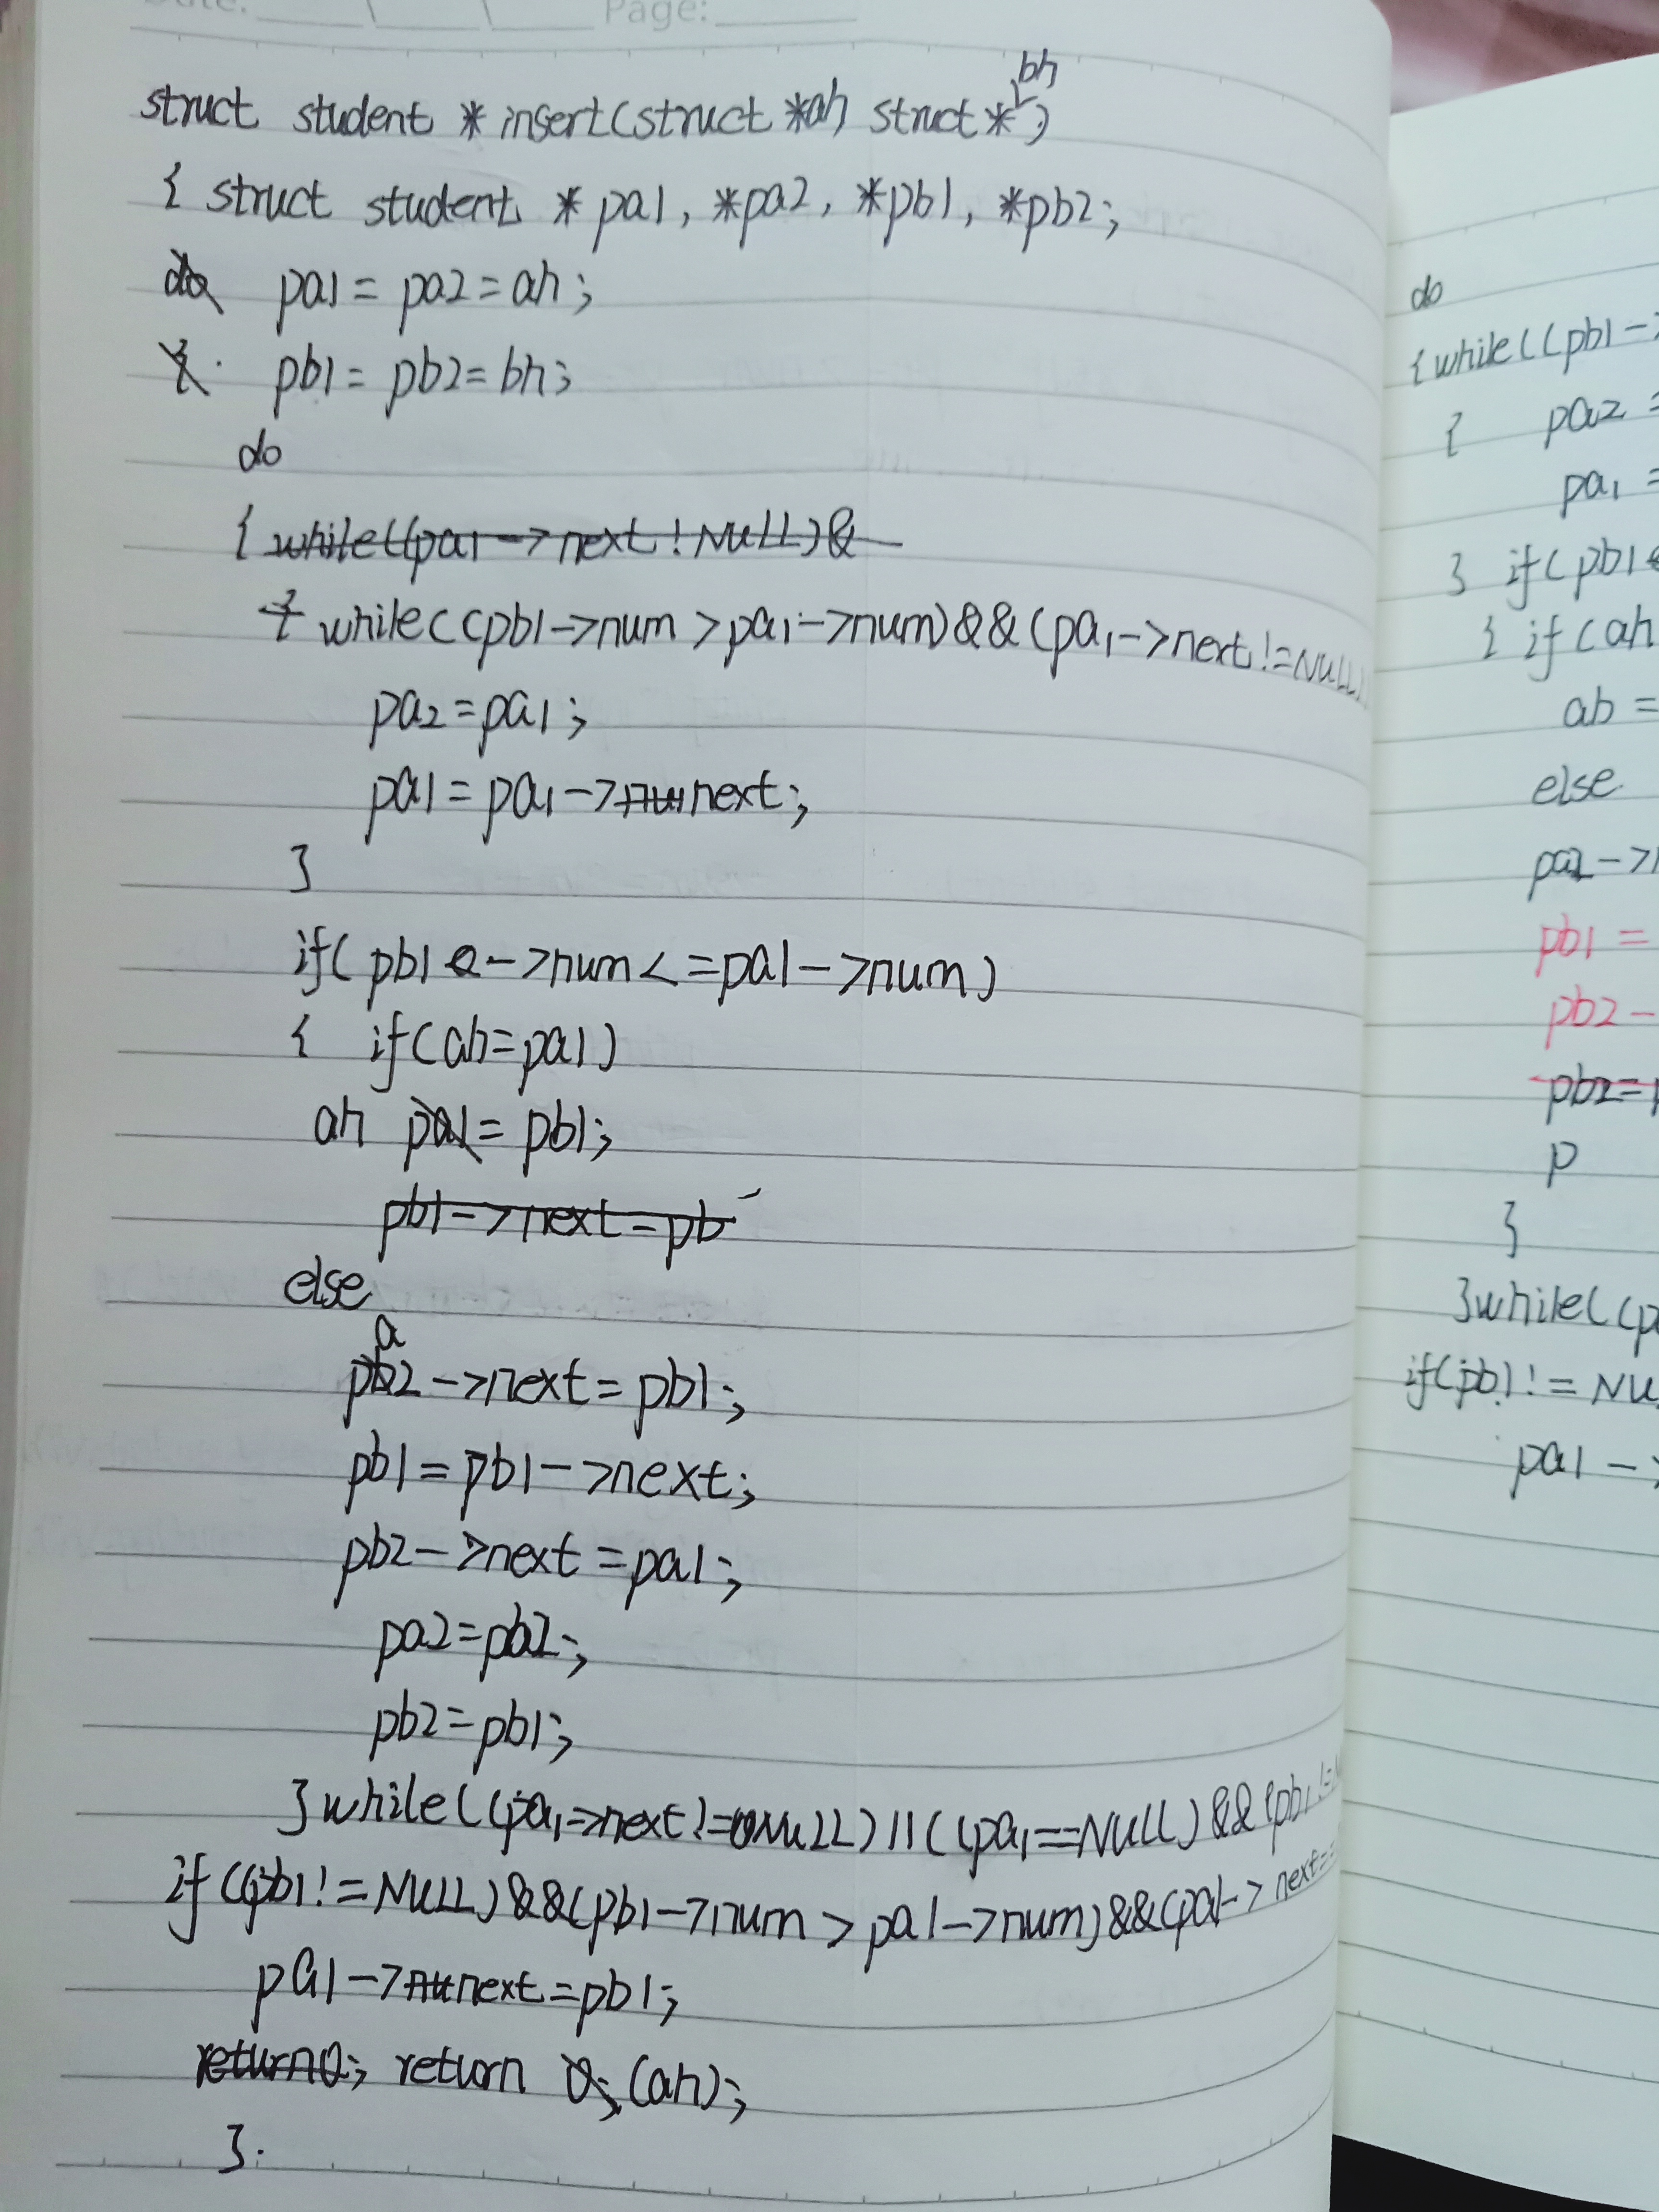 Page:
struct student * insert(struct *ah struct * bh)
{ struct student * pa1, *pa2, *pb1, *pb2;
pa1 = pa2 = ah;
pb1 = pb2 = bh;
do
{ while((pa1->next!NULL)&
{ while((pb1->num > pa1->num)&&(pa1->next!=NULL)
pa2=pa1;
pa1= pa1->next;
}
if( pb1->num<=pa1->num)
{ if(ah=pa1)
ah = pb1;
pb1->next=pb
else
pa2->next=pb1;
pb1=pb1->next;
pb2->next=pa1;
pa2=pb2;
pb2=pb1;
}while((pa1->next!=NULL)||((pa1==NULL)&&(pb1!=
if((pb1!=NULL)&&(pb1->num>pa1->num)&&(pa1->next==
pa1->next=pb1;
return0; return (ah);
}.
do
{while((pb1->
{ pa2=
pa1=
} if(pb1
{ if(ah
ab=
else
pa2->
pb1=
pb2-
pb2=
p
}
}while((p
if(pb1!=NU
pa1->